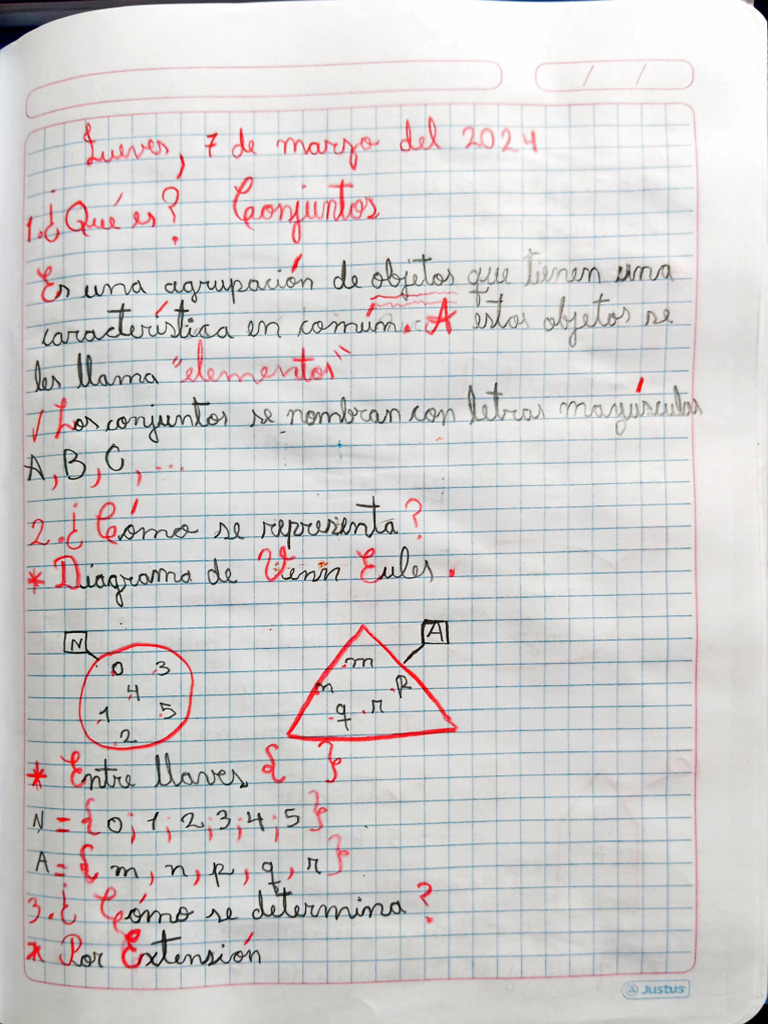 Jueves, 7 de marzo del 2024
1. ¿Qué es? Conjuntos
Es una agrupación de objetos que tienen una
característica en común. A estos objetos se
les llama "elementos"
√ Los conjuntos se nombran con letras mayúsculas
A, B, C, ...
2. ¿Cómo se representa?
* Diagrama de Venn Eules.
N
0 3
4
1 5
2
A
m
n p
q r
* Entre llaves { }
N = {0; 1; 2; 3; 4; 5}
A = {m, n, p, q, r}
3. ¿Cómo se determina?
* Por Extensión
Justus